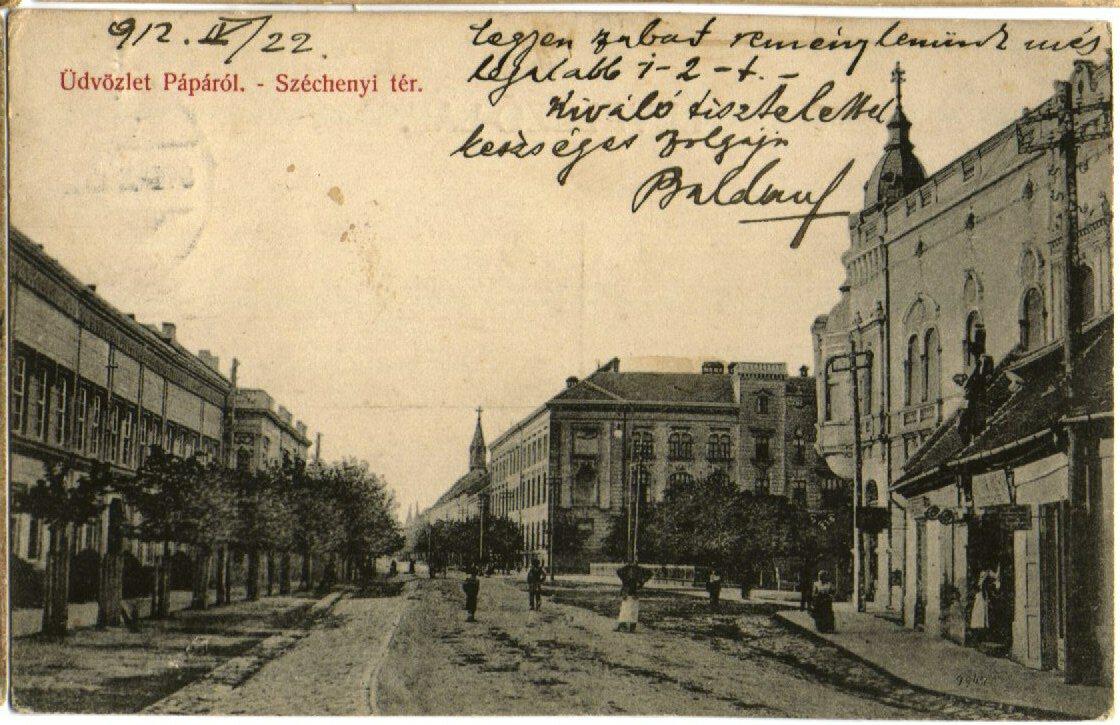 912. IV/22.
Üdvözlet Pápáról. - Széchenyi tér.
legyen szabad reménylenünk még
legalább 1-2-t. -
Kiváló tisztelettel
készséges szolgája
Baldauf